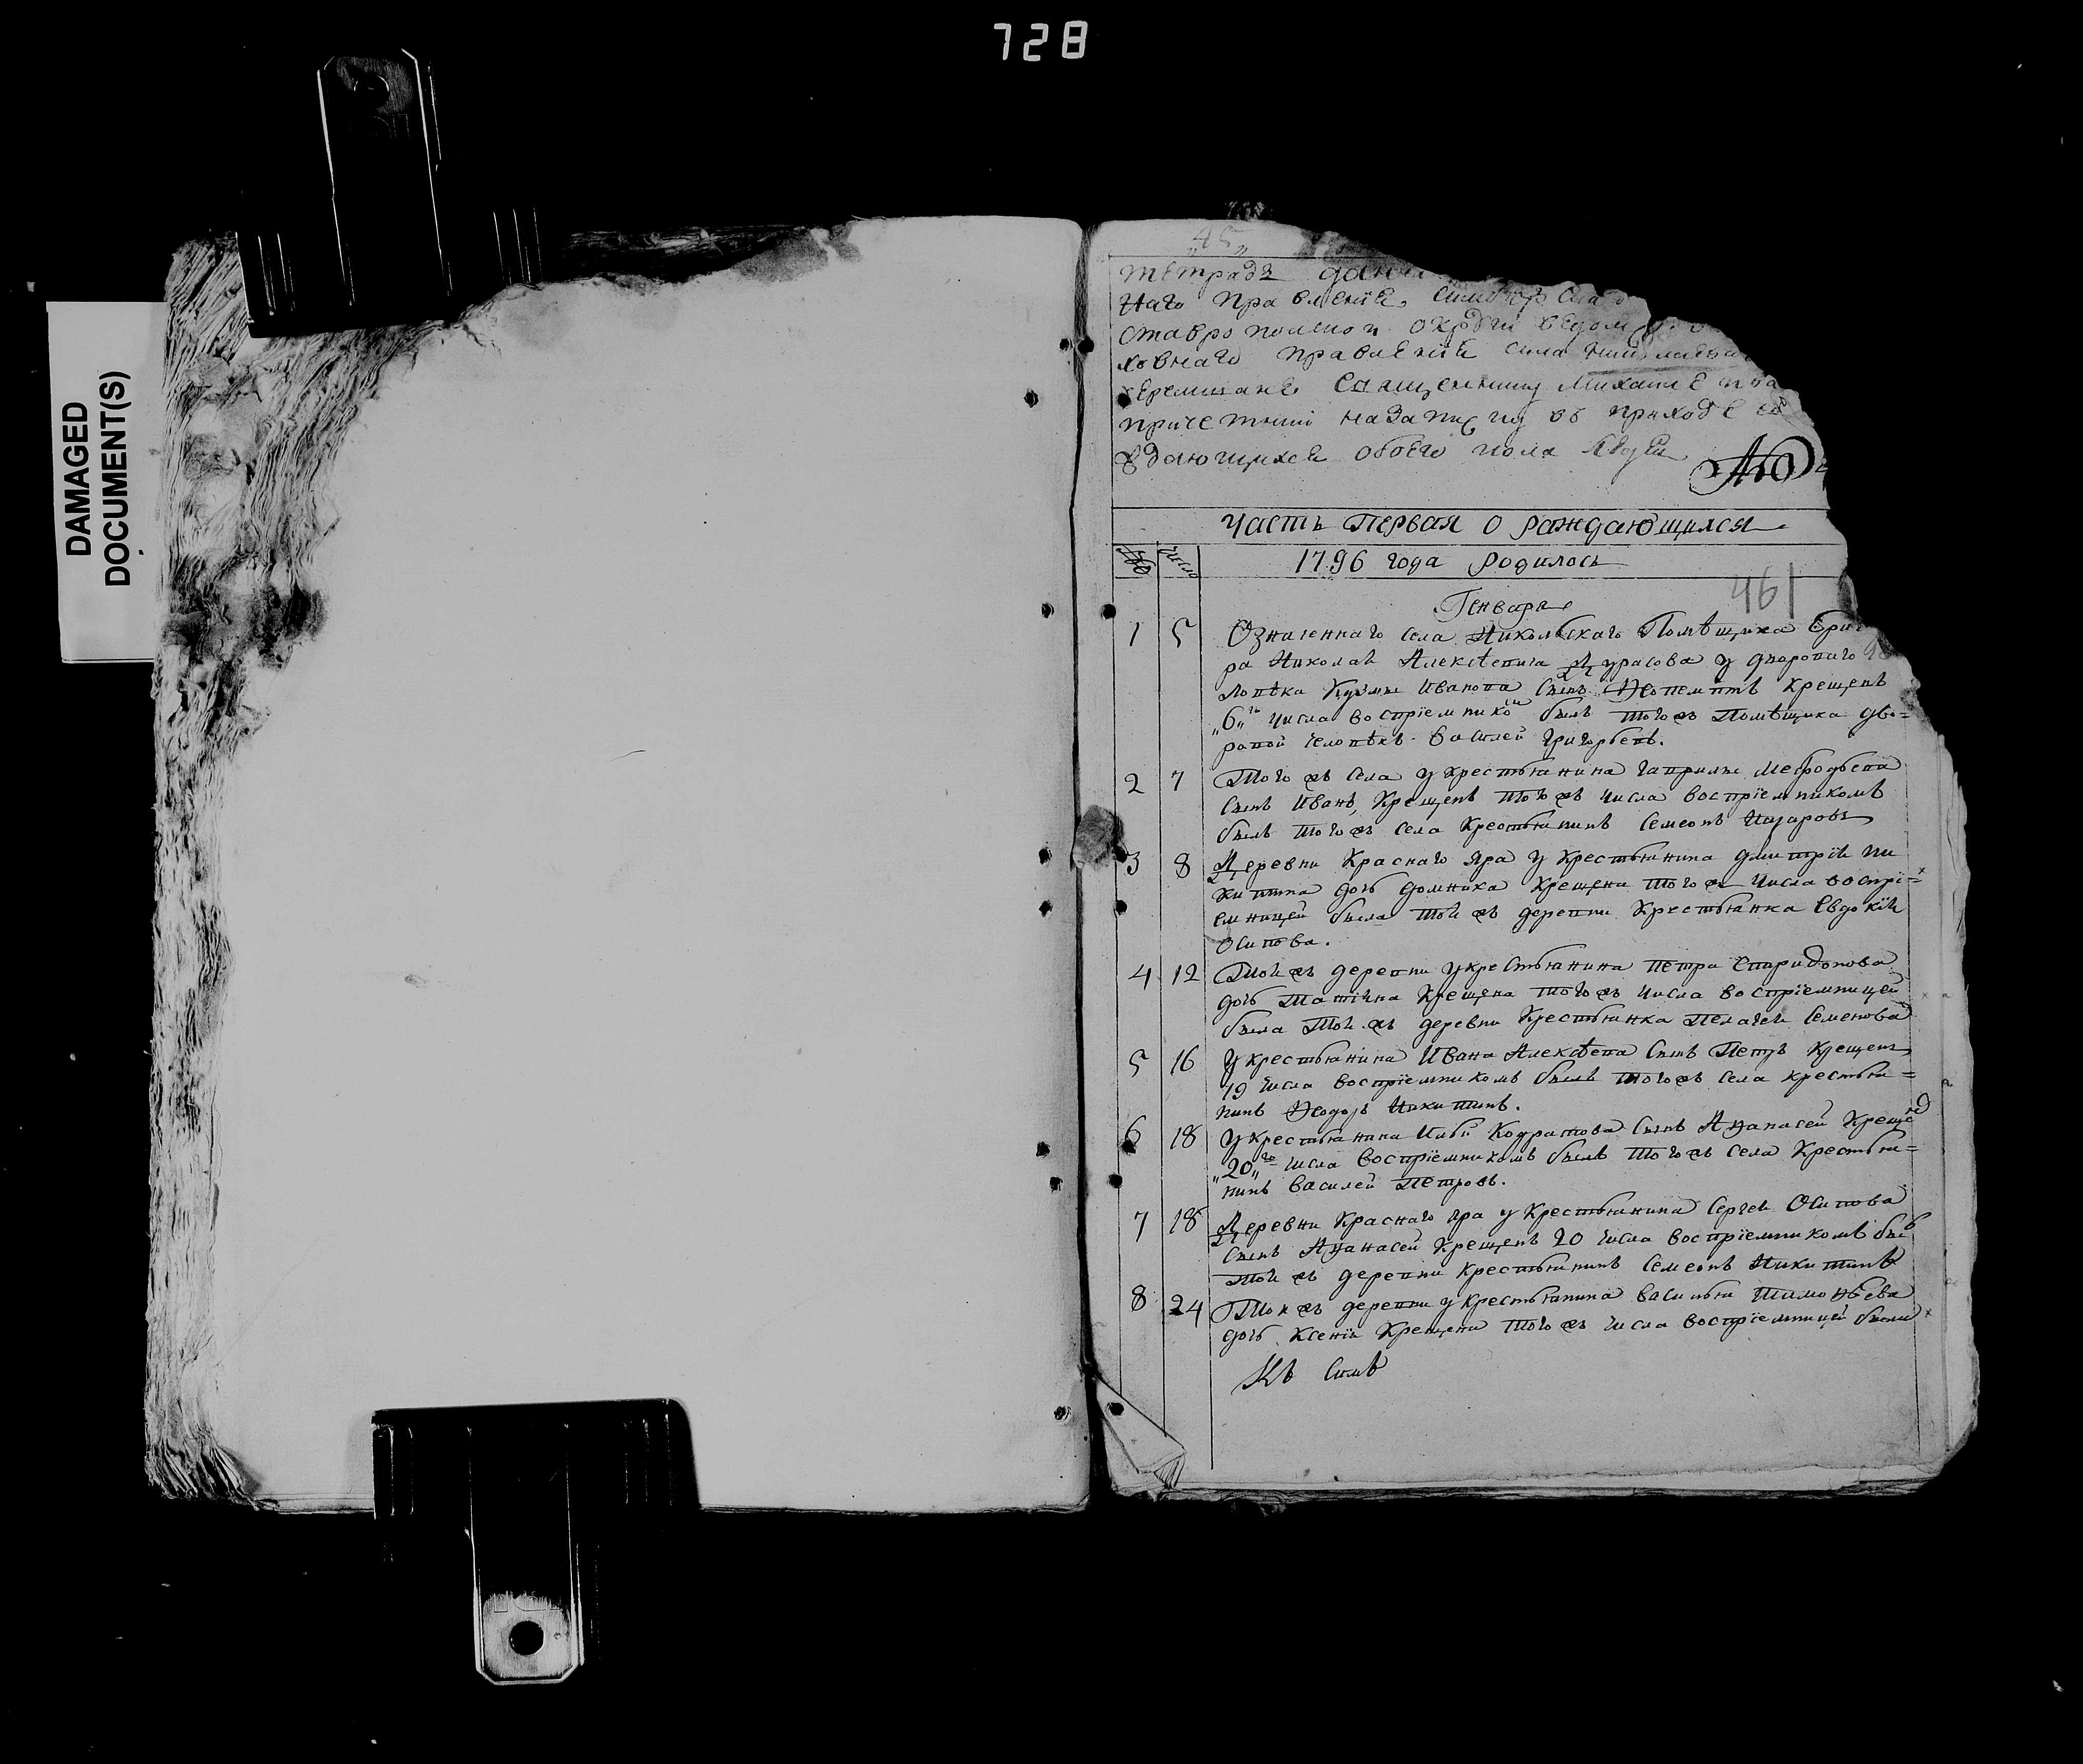 728
DAMAGED
DOCUMENT(S)
„45„
тетрадь
наго правленїе
ставропольской округи ведом
ховнаго правленїе села
черемшане священнику Михаиле
причетники на записку въ приходе
ждающихся обоего пола людеи
Часть Первая о раждающихся
число
1796 года родилось
461
Генваря
1 5 Означеннаго села Никольскаго Помѣщика Бриг
ра Николая Алексѣевича Дурасова у двороваго че
ловѣка Кузмы Иванова сынъ крещенъ
„6„го числа воспрїемникомъ былъ тогожъ Помѣщика дво=
ровой человѣкъ Василей Григорьевъ.
2 7 Тогожъ села у крестьянина Гаврилы Мефодьева
сынъ Иванъ, крещенъ тогожъ числа воспрїемникомъ
былъ тогожъ села крестьянинъ Семеонъ Назаровъ
3 8 Деревни Краснаго яра у крестьянина Дмитрїя Ни
китина дочь Домника крещена тогожъ числа воспрї=
емницей была тойжъ деревни крестьянка Евдокїя
Осипова.
4 12 Тойжъ деревни у крестьянина Петра Спиридонова
дочь Татїяна крещена тогожъ числа воспрїемницей
была тойжъ деревни крестьянка Пелагея Семенова
5 16 У крестьянина Ивана Алексѣева сынъ Петръ крещенъ
19 числа воспрїемникомъ былъ тогожъ села крестья=
нинъ Ѳедоръ Никитинъ.
6 18 У крестьянина Ильи Кодратова сынъ Аѳанасей крещенъ
„20„го числа воспрїемникомъ былъ тогожъ села крестья=
нинъ Василей Петровъ.
7 18 Деревни Краснаго яра у крестьянина Сергея Осипова
сынъ Аѳанасей крещенъ 20 числа воспрїемникомъ былъ
тойжъ деревни крестьянинъ Семеонъ Никитинъ
8 24 Тойжъ деревни у крестьянина Василья Тимоѳьева
дочь Ксенїя крещена тогожъ числа воспрїемницей была
Къ симъ